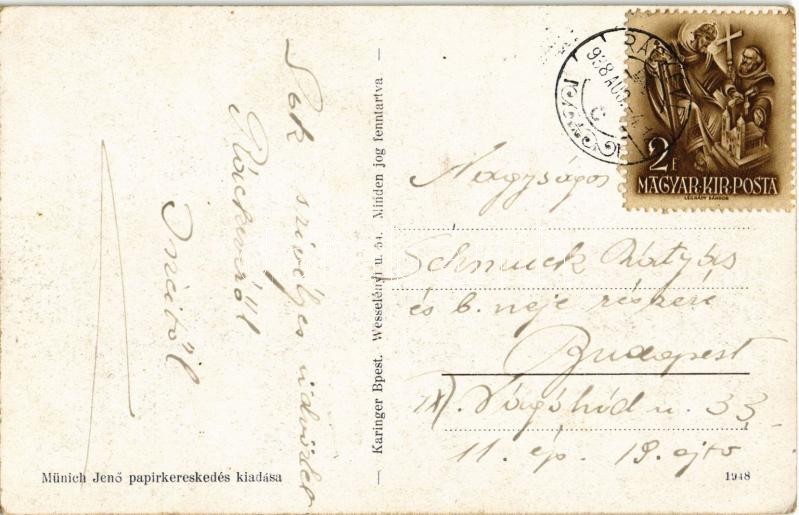 Sok szivélyes üdvözlet
Ráckevéről
Incitől
Münich Jenő papirkereskedés kiadása
— Karinger Bpest. Wesselényi u. 51. Minden jog fenntartva —
938 AUG.
2 f
MAGYAR·KIR·POSTA
LÉGRÁDY SÁNDOR
Nagyságos
Schmuck Mátyás
és b. neje részére
Budapest
IX. Vágóhíd u. 33
11. ép. 19. ajtó
1948